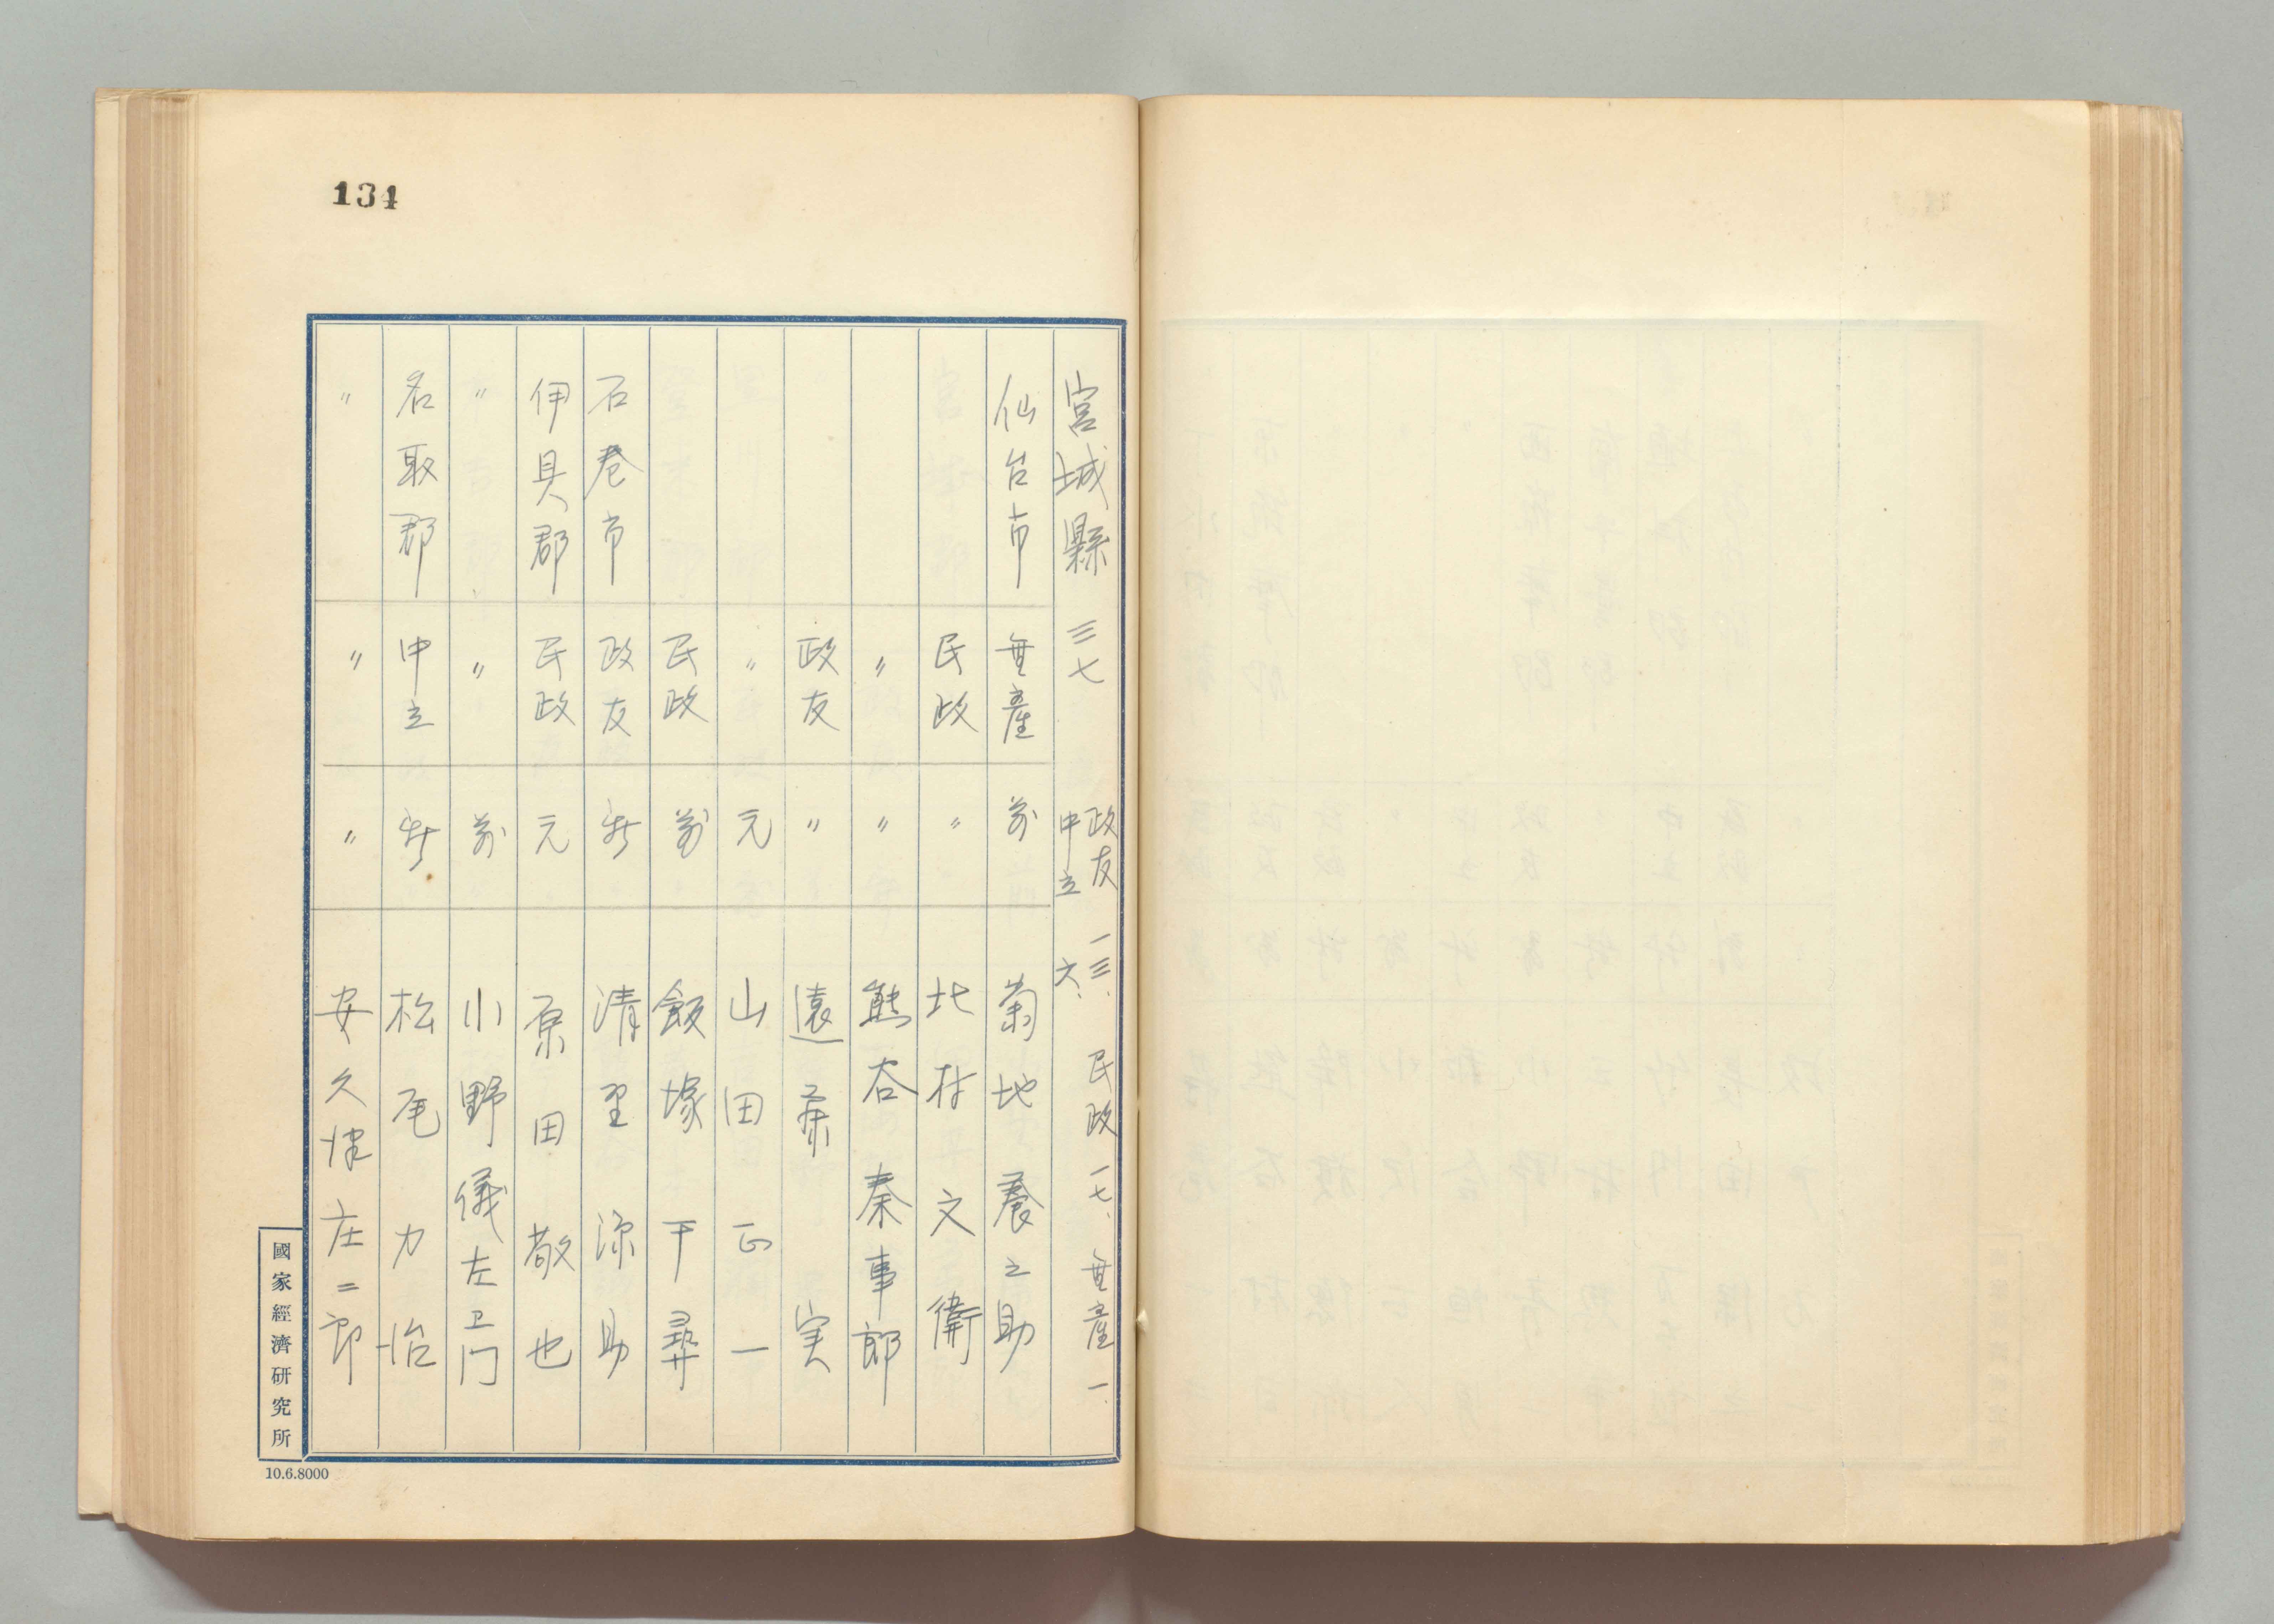 134
宮城縣 三七 政友 一三、 民政 一七、 無産 一、
中立 六、
仙台市 無産 前 菊地養之助
民政 〃 北村文衛
〃 〃 熊谷泰事郎
政友 〃 遠藤実
〃 元 山田正一
民政 前 飯塚干彛
石巻市 政友 新 清野源助
伊具郡 民政 元 原田敬也
〃 〃 前 小野儀左卫门
名取郡 中立 新 松尾力治
〃 〃 〃 安久津庄二郎
國家經濟研究所
10.6.8000